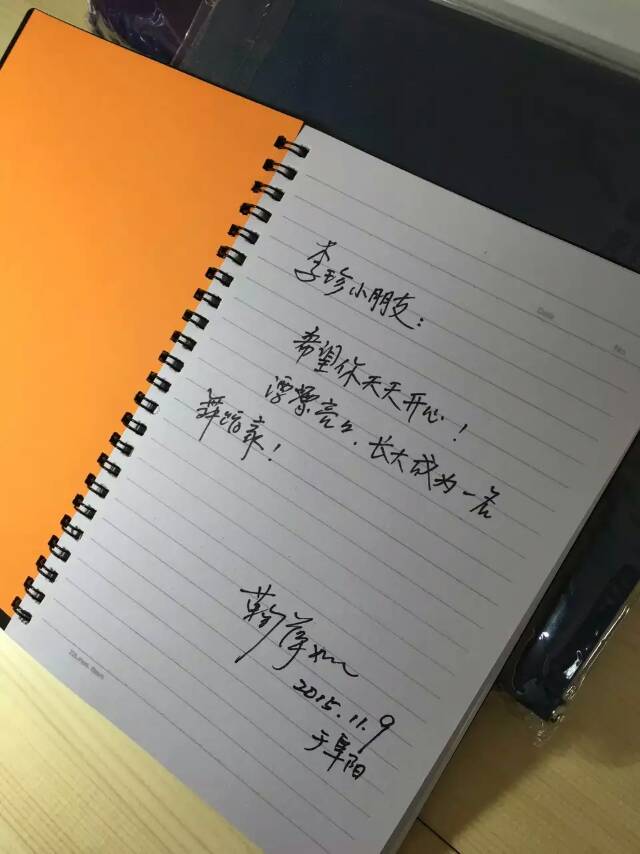 Date No.
李珍小朋友：
希望你天天开心！
漂漂亮々、长大成为一名
舞蹈家！
2015.11.9
于阜阳